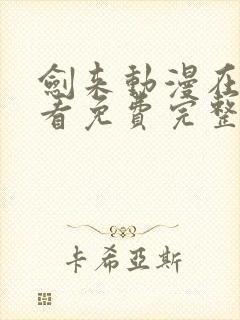 劍来動漫在
看免費完整
卡希亞斯